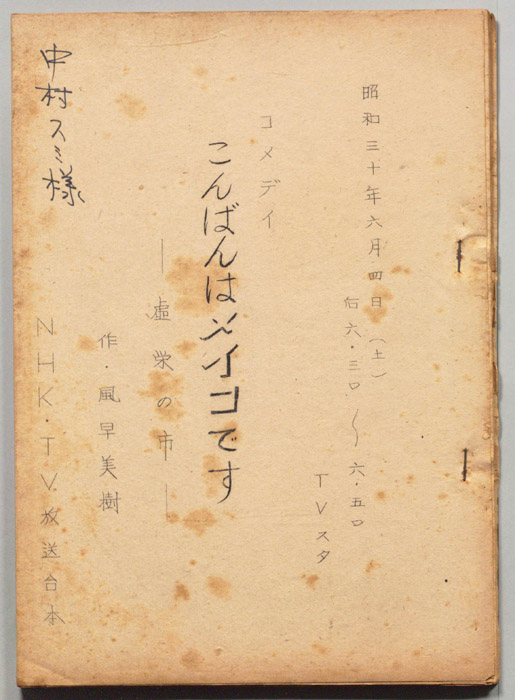 昭和三十年六月四日(土)
后六・三〇~六・五〇
TVスタ
コメデイ
こんばんはメイコです
―虚栄の市―
作・風早美樹
NHK・TV放送台本
中村スミ様